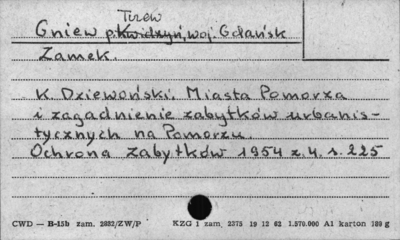 Tczew
Gniew p. Kwidzyń, woj. Gdańsk
Zamek.
K. Dziewoński. Miasta Pomorza
i zagadnienie zabytków urbanis-
tycznych na Pomorzu.
Ochrona Zabytków 1954 z. 4. s. 225
CWD — B-15b zam. 2882/ZW/P KZG 1 zam. 2375 19 12 62 1.570.000 A1 karton 180 g